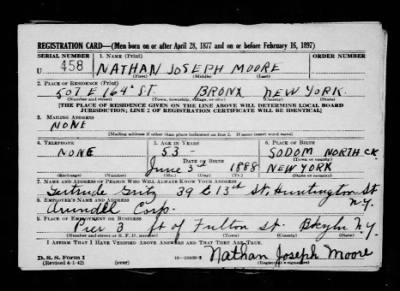 REGISTRATION CARD—(Men born on or after April 28, 1877 and on or before February 16, 1897)
SERIAL NUMBER 1. NAME (Print) ORDER NUMBER
U 458 NATHAN JOSEPH MOORE
(First) (Middle) (Last)
2. PLACE OF RESIDENCE (Print)
507 E 164 ST. BRONX NEW YORK.
(Number and street) (Town, township, village, or city) (County) (State)
[THE PLACE OF RESIDENCE GIVEN ON THE LINE ABOVE WILL DETERMINE LOCAL BOARD
JURISDICTION; LINE 2 OF REGISTRATION CERTIFICATE WILL BE IDENTICAL]
3. MAILING ADDRESS
NONE
[Mailing address if other than place indicated on line 2. If same insert word same]
4. TELEPHONE 5. AGE IN YEARS 6. PLACE OF BIRTH
NONE 53 SODOM NORTH CK.
DATE OF BIRTH (Town or county)
June 3 1888 NEW YORK
7. NAME AND ADDRESS OF PERSON WHO WILL ALWAYS KNOW YOUR ADDRESS
Gertrude 39 E 13th St. Huntington St
N.Y.
8. EMPLOYER'S NAME AND ADDRESS
Arundel Corp.
9. PLACE OF EMPLOYMENT OR BUSINESS
Pier 3 ft of Fulton St. Bklyn N.Y.
(Number and street or R. F. D. number) (Town) (County) (State)
I AFFIRM THAT I HAVE VERIFIED ABOVE ANSWERS AND THAT THEY ARE TRUE.
D. S. S. Form 1
(Revised 4-1-42) (over) Nathan Joseph Moore